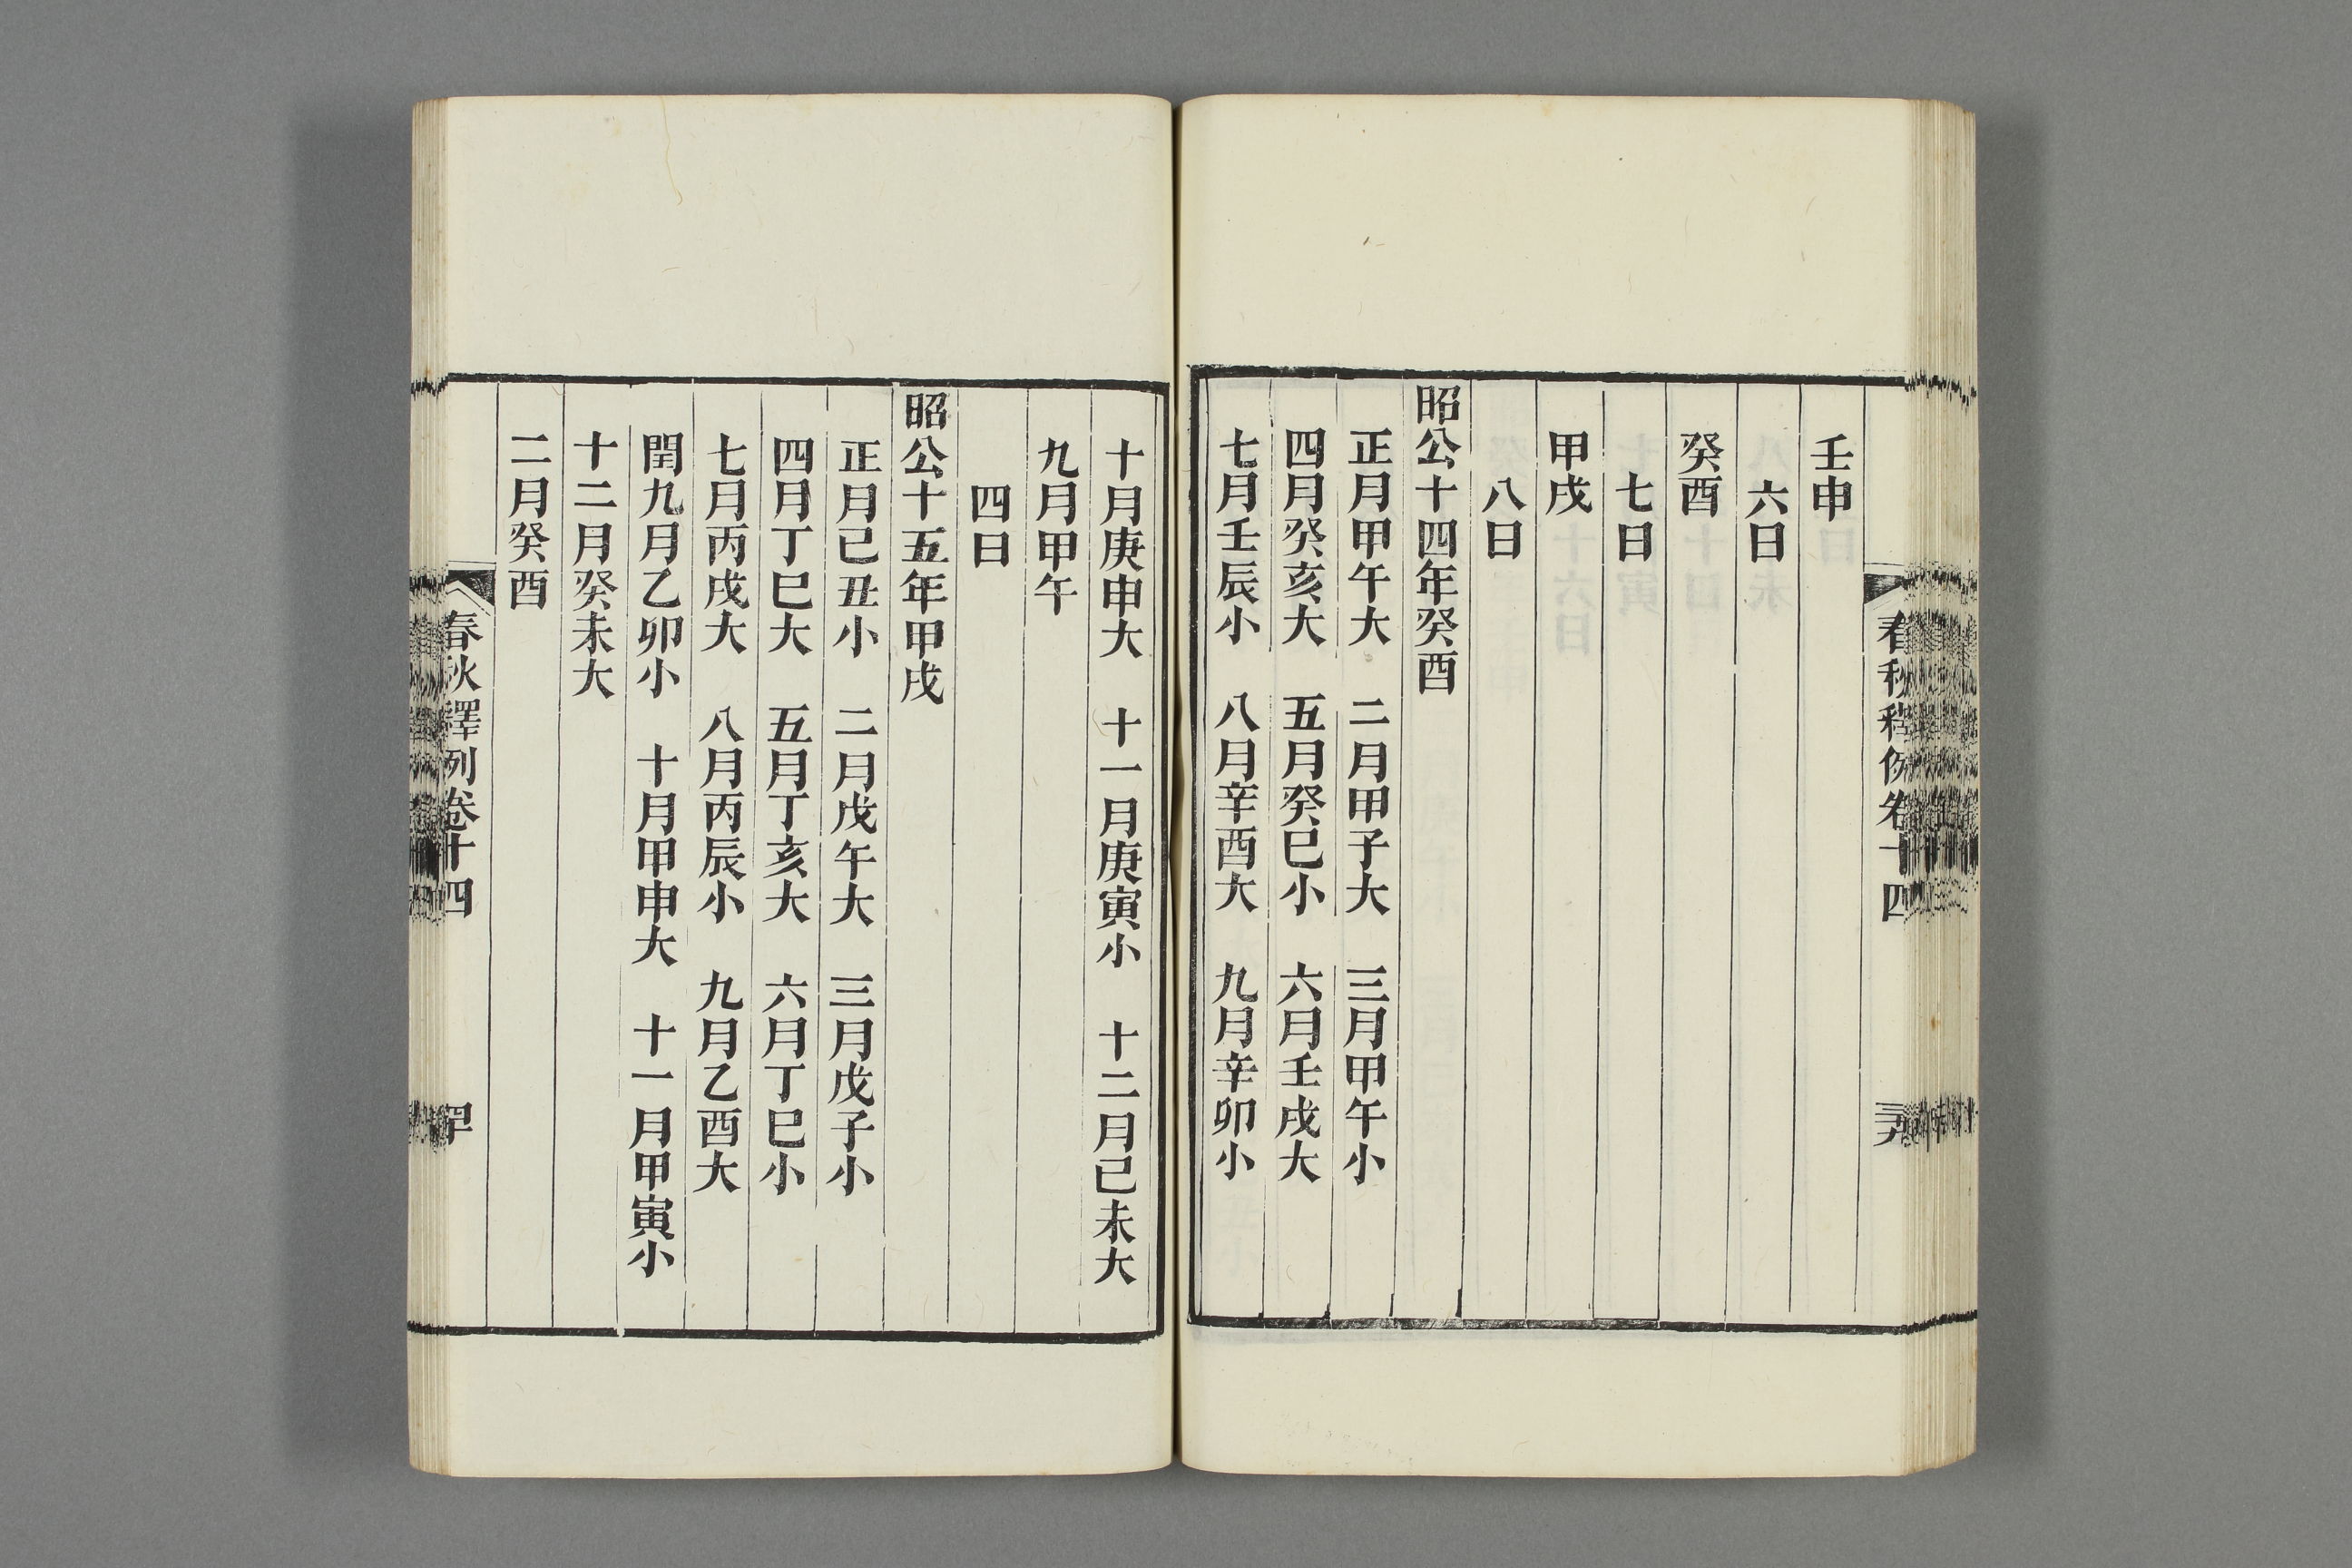 春秋釋例卷十四
壬申
六日
癸酉
七日
甲戌
八日
昭公十四年癸酉
正月甲午大　二月甲子大　三月甲午小
四月癸亥大　五月癸巳小　六月壬戌大
七月壬辰小　八月辛酉大　九月辛卯小
十月庚申大　十一月庚寅小　十二月己未大
九月甲午
四日
昭公十五年甲戌
正月己丑小　二月戊午大　三月戊子小
四月丁巳大　五月丁亥大　六月丁巳小
七月丙戌大　八月丙辰小　九月乙酉大
閏九月乙卯小　十月甲申大　十一月甲寅小
十二月癸未大
二月癸酉
春秋釋例卷十四